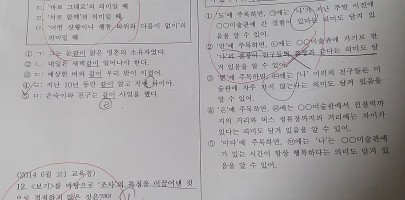 '바로 그대로'의 의미일 때
'서로 함께'의 의미일 때
'어떤 상황이나 행동 따위와 다름이 없이'의
의미일 때
① ㄱ: 그는 눈같이 맑은 영혼의 소유자였다.
② ㄱ: 내일은 새벽같이 일어나야 한다.
③ ㄴ: 예상한 바와 같이 우리 반이 이겼어.
④ ㄷ: 지난 10년 동안 같이 알고 지낸 사이야.
⑤ ㄷ: 은숙이와 친구는 같이 사업을 했다.
(2014 6월 고1 교육청)
12. <보기>를 바탕으로 '조사'의 특징을 이끌어낸 것
으로 적절하지 않은 것은?
① '도'에 주목하면, ㉠에는 '나'가 지난 주말 이전에
○○미술관에 간 경험이 있다는 의미도 담겨 있
음을 알 수 있어.
② '만'에 주목하면, ㉡에는 ○○미술관에 가기로 한
'나'의 결정이 친구들의 같다는 의미도 담
겨 있음을 알 수 있어.
③ 에 주목하면, ㉢에는 '나' 이외의 친구들은 미
술관에 자주 가지 않는다는 의미도 담겨 있음을
알 수 있어.
④ '은'에 주목하면, ㉣에는 ○○미술관에서 전철역까
지의 거리와 버스 정류장까지의 거리에는 차이가
있다는 의미도 담겨 있음을 알 수 있어.
⑤ '마다'에 주목하면, ㉤에는 '나'는 ○○미술관에
가 있는 시간이 항상 행복하다는 의미도 담겨 있
음을 알 수 있어.